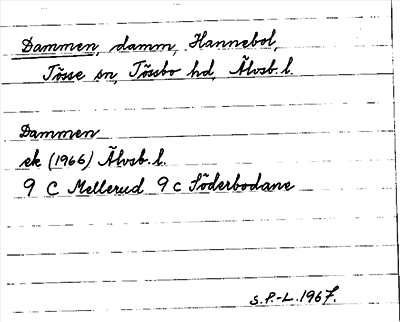 Dammen, damm, Hannebol,
Tösse sn, Tössbo hd, Älvsb. l.
Dammen
ek (1966) Älvsb. l.
9 C Mellerud 9 c Söderbodane
S. P.-L. 1967.